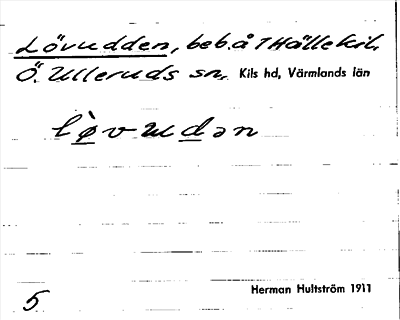 Lövudden, beb. å 1 Hällekil,
Ö. Ulleruds sn, Kils hd, Värmlands län
lø̀vud̲ən
Herman Hultström 1911
5